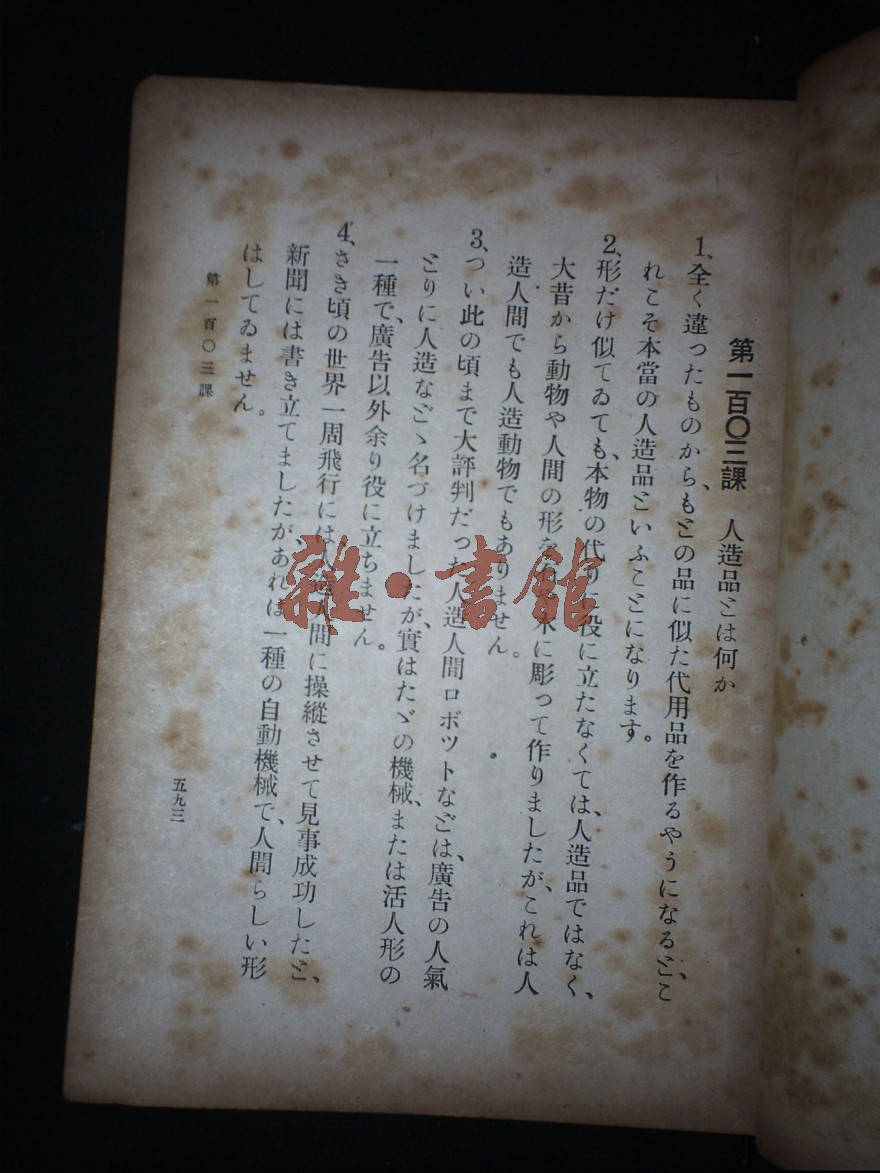 第一百〇三課　人造品とは何か
1、全く違ったものから、もとの品に似た代用品を作るやうになると、こ
れこそ本當の人造品といふことになります。
2、形だけ似てゐても、本物の代りに役に立たなくては、人造品ではなく、
大昔から動物や人間の形を木に彫って作りましたが、これは人
造人間でも人造動物でもありません。
3、つい此の頃まで大評判だった人造人間ロボツトなどは、廣告の人氣
とりに人造などゝ名づけましたが、實はたゞの機械、または活人形の
一種で、廣告以外余り役に立ちません。
4、さき頃の世界一周飛行には人造人間に操縱させて見事成功したと、
新聞には書き立てましたがあれは一種の自動機械で、人間らしい形
はしてゐません。
第一百〇三課
五九三
雜・書館